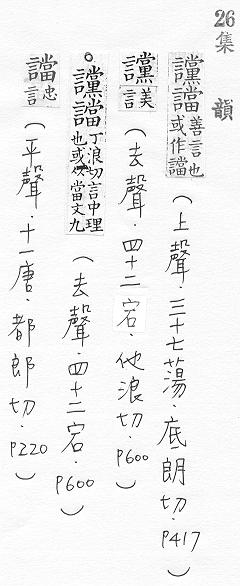 26
集韻
讜譡善言也或作譡（上聲．三十七蕩．底朗切．P417）
讜美言（去聲．四十二宕．他浪切．P600）
○讜譡丁浪切言中理也或从當文九（去聲．四十二宕．P600）
譡忠言（平聲．十一唐．都郎切．P220）